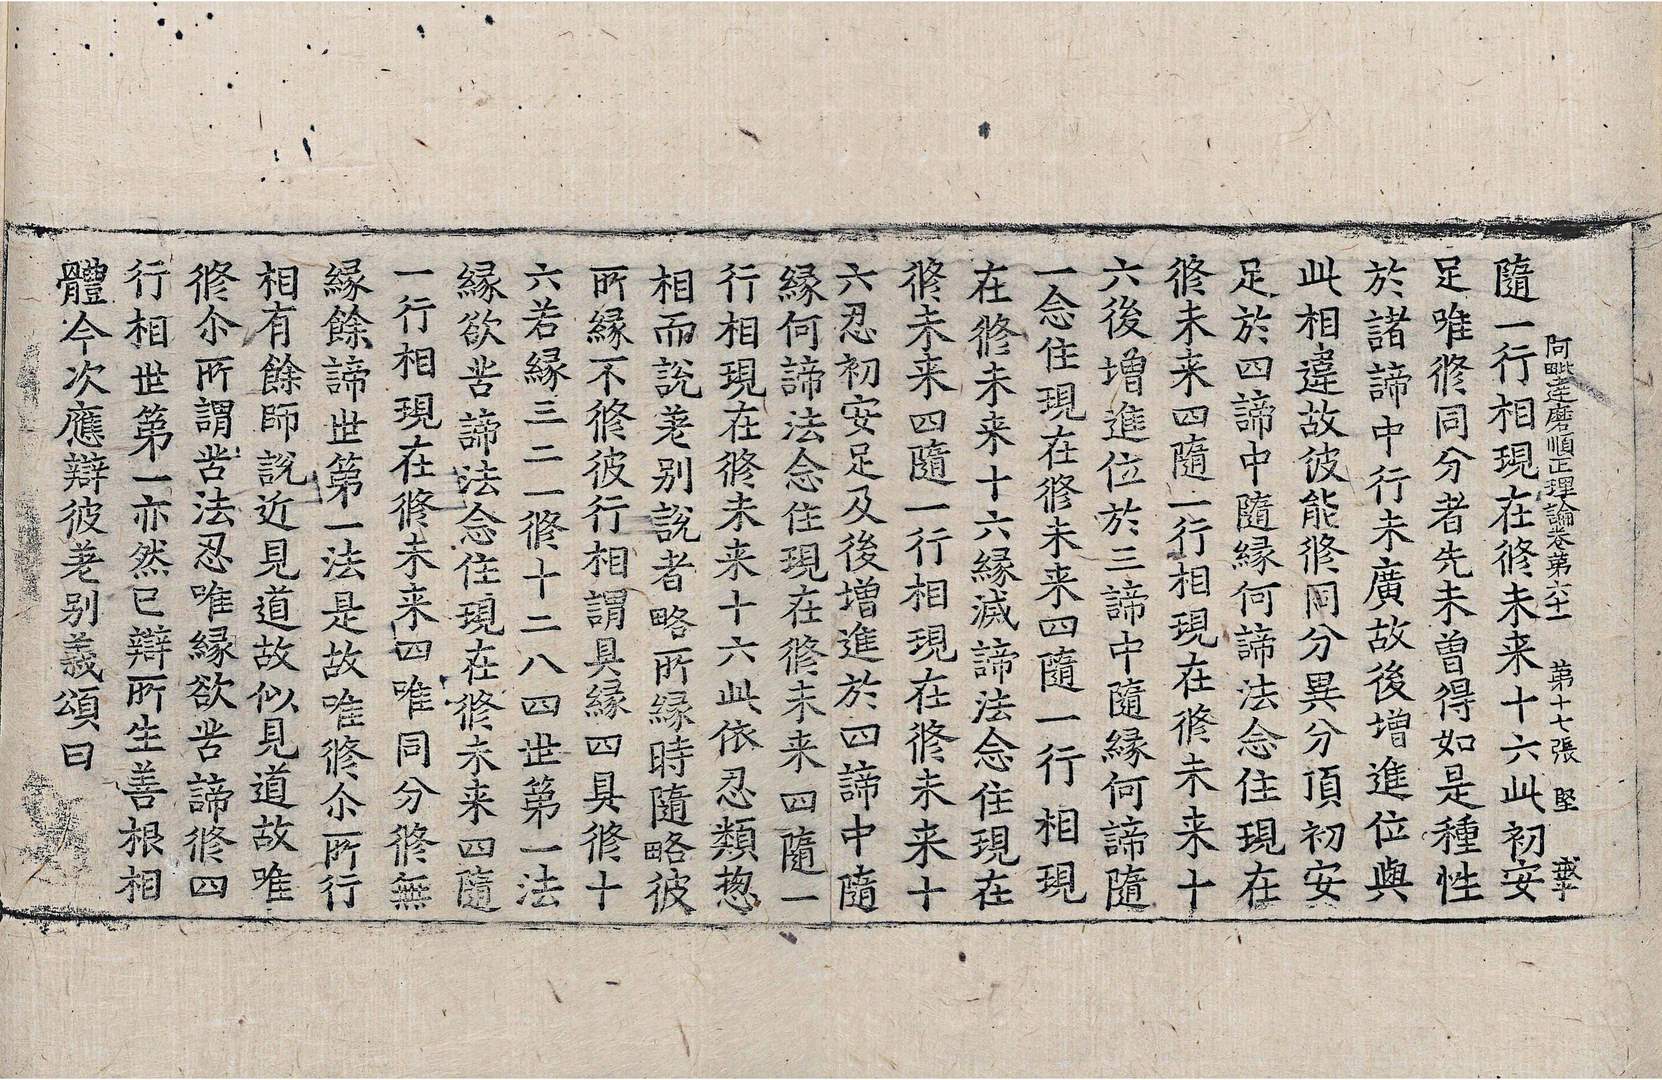 阿毗達磨順正理論卷第六十一 第十七張 堅
隨一行相現在修未来十六此初安
足唯修同分者先未曾得如是種性
於諸諦中行未廣故後增進位與
此相違故彼能修同分異分頂初安
足於四諦中隨緣何諦法念住現在
修未来四隨一行相現在修未来十
六後增進位於三諦中隨緣何諦隨
一念住現在修未来四隨一行相現
在修未来十六緣滅諦法念住現在
修未来四隨一行相現在修未来十
六忍初安足及後增進於四諦中隨
緣何諦法念住現在修未来四隨一
行相現在修未来十六此依忍類惣
相而說差别說者略所緣時隨略彼
所緣不修彼行相謂具緣四具修十
六若緣三二一修十二八四世第一法
緣欲苦諦法念住現在修未来四隨
一行相現在修未来四唯同分修無
緣餘諦世第一法是故唯修尒所行
相有餘師說近見道故似見道故唯
修尒所謂苦法忍唯緣欲苦諦修四
行相世第一亦然已辯所生善根相
體今次應辯彼差别義頌曰